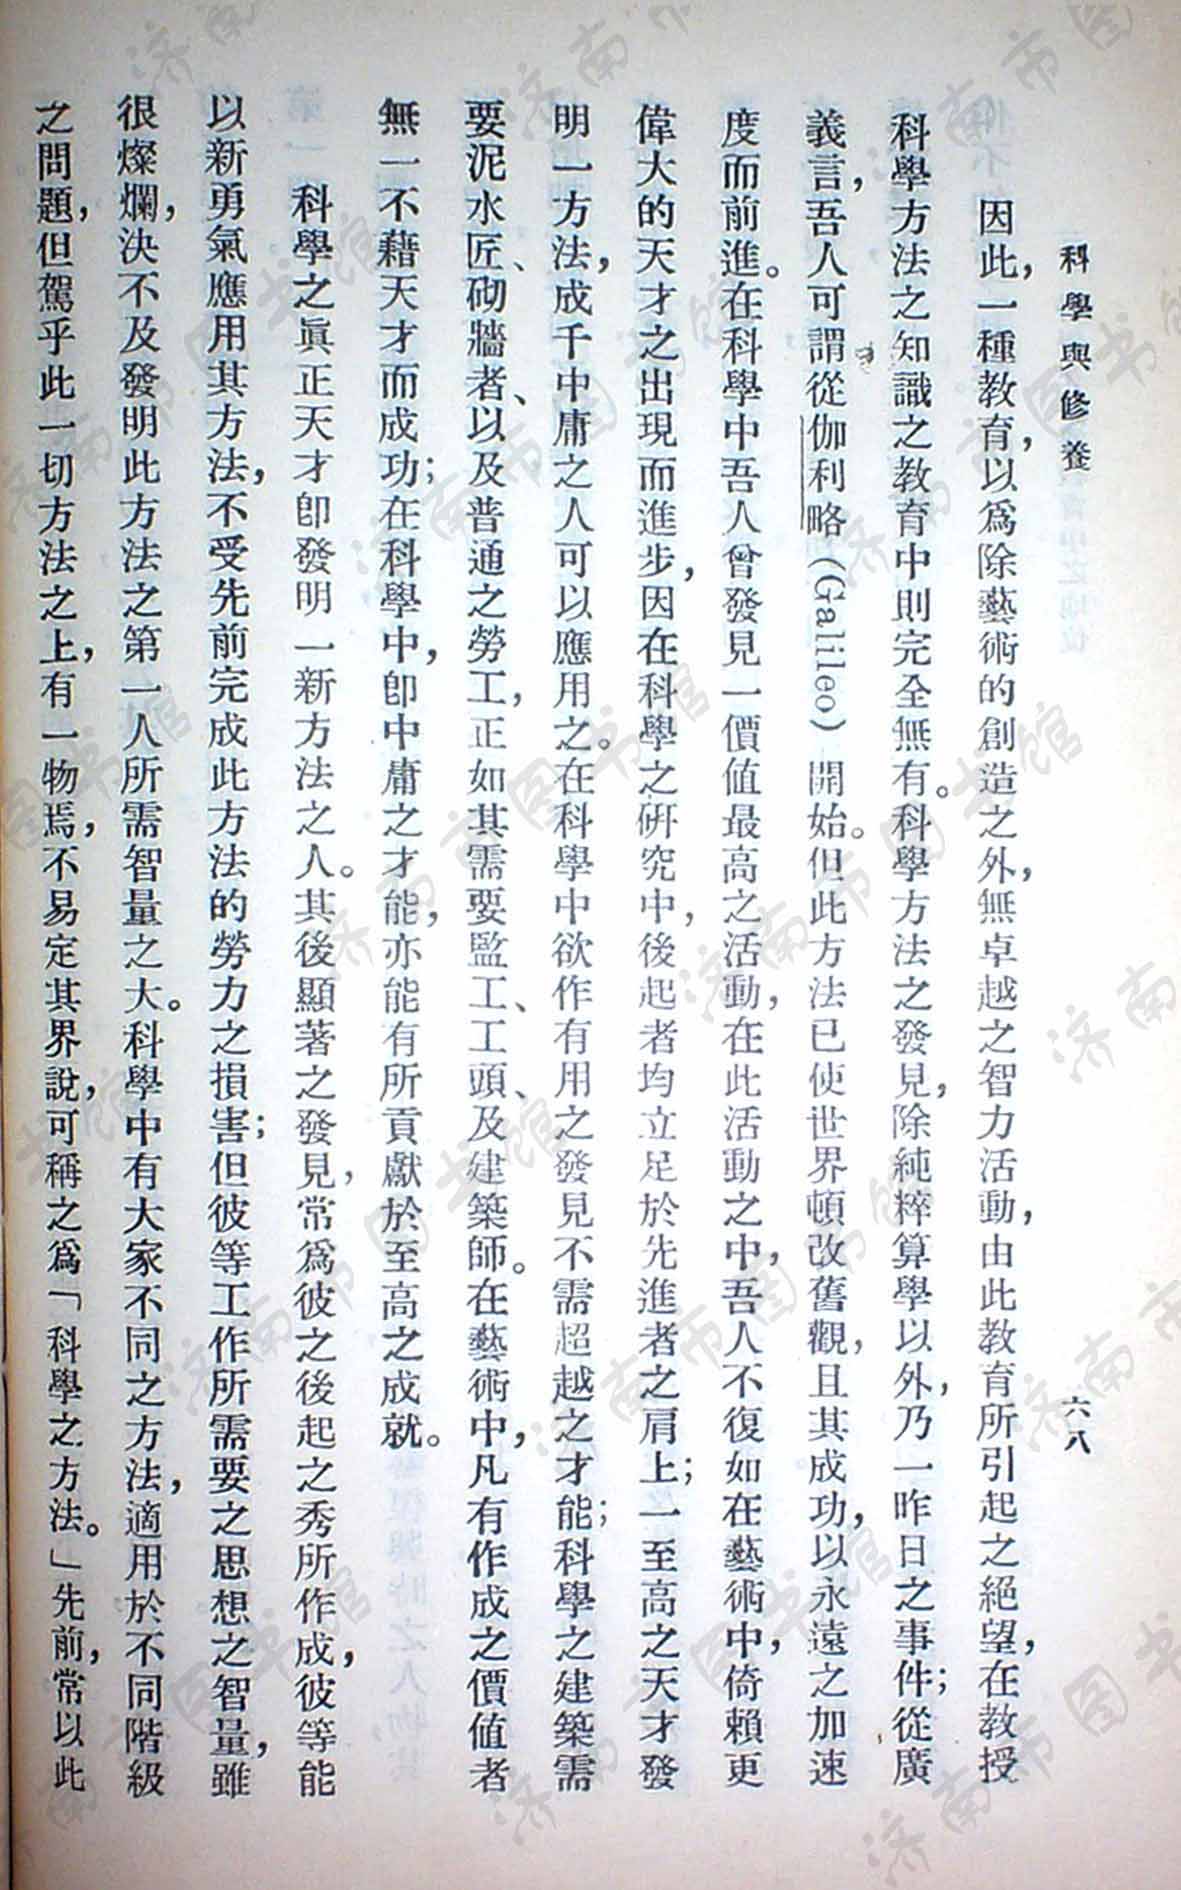 科學與修養
六八
因此，一種教育，以爲除藝術的創造之外，無卓越之智力活動，由此教育所引起之絕望，在教授
科學方法之知識之教育中則完全無有。科學方法之發見，除純粹算學以外，乃一昨日之事件；從廣
義言，吾人可謂從伽利略（Galileo）開始。但此方法已使世界頓改舊觀，且其成功，以永遠之加速
度而前進。在科學中吾人曾發見一價值最高之活動，在此活動之中，吾人不復如在藝術中，倚賴更
偉大的天才之出現而進步，因在科學之研究中，後起者均立足於先進者之肩上；一至高之天才發
明一方法，成千中庸之人可以應用之。在科學中欲作有用之發見不需超越之才能；科學之建築需
要泥水匠、砌牆者、以及普通之勞工，正如其需要監工、工頭、及建築師。在藝術中，凡有作成之價值者
無一不藉天才而成功；在科學中，卽中庸之才能，亦能有所貢獻於至高之成就。
科學之眞正天才卽發明一新方法之人。其後顯著之發見，常爲彼之後起之秀所作成，彼等能
以新勇氣應用其方法，不受先前完成此方法的勞力之損害；但彼等工作所需要之思想之智量，雖
很燦爛，決不及發明此方法之第一人所需智量之大。科學中有大家不同之方法，適用於不同階級
之問題，但駕乎此一切方法之上，有一物焉，不易定其界說，可稱之爲「科學之方法。」先前，常以此
济南市图书馆